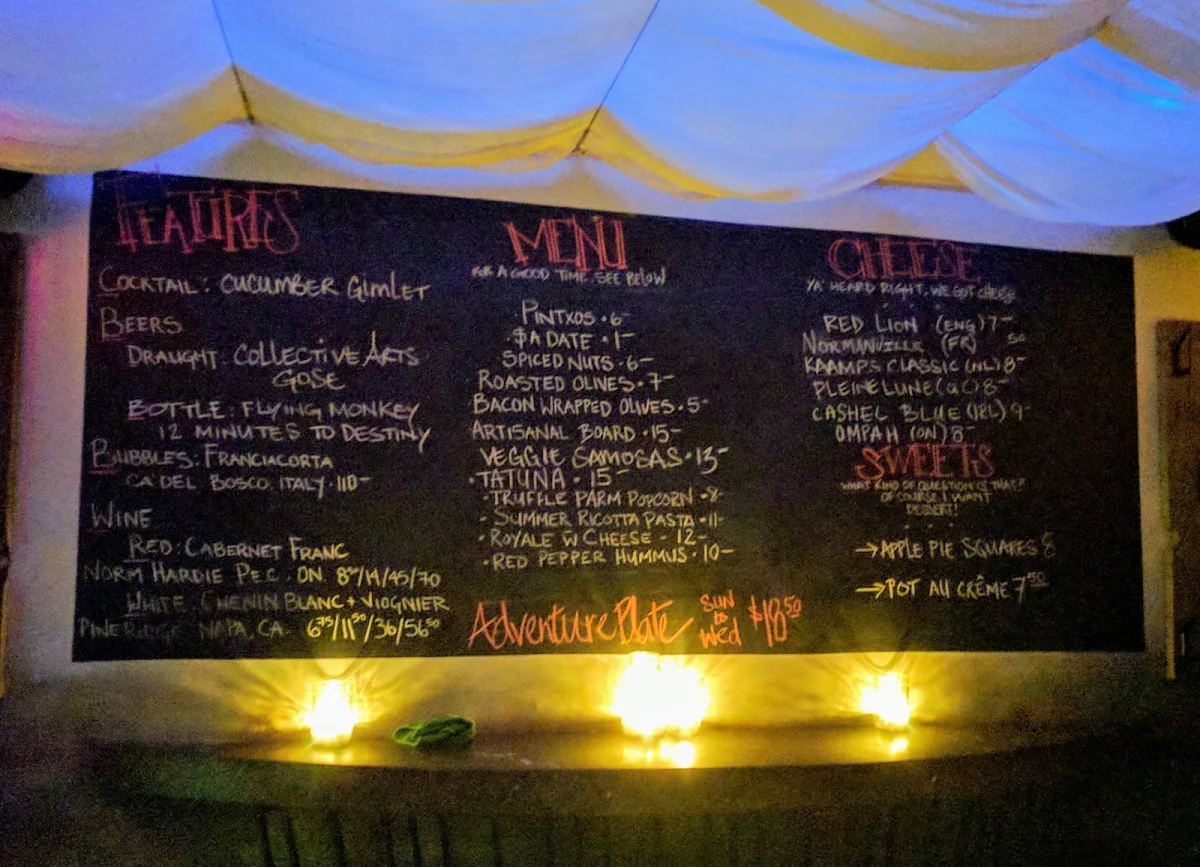 FEATURES
COCKTAIL: CUCUMBER GIMLET
BEERS
DRAUGHT: COLLECTIVE ARTS
GOSE
BOTTLE: FLYING MONKEY
12 MINUTES TO DESTINY
BUBBLES: FRANCIACORTA
CA'DEL BOSCO. ITALY · 110-
WINE
RED: CABERNET FRANC
NORM HARDIE P.E.C. ON. /14/45/70
WHITE: CHENIN BLANC + VIOGNIER
PINE RIDGE NAPA, CA. 6 75/11 50/36/56 50
MENU
FOR A GOOD TIME SEE BELOW
PINTXOS · 6-
$A DATE · 1-
SPICED NUTS · 6-
ROASTED OLIVES · 7-
BACON WRAPPED OLIVES · 5-
ARTISANAL BOARD · 15-
VEGGIE SAMOSAS · 13-
· TATUNA · 15-
· TRUFFLE PARM POPCORN · 8-
· SUMMER RICOTTA PASTA · 11-
· ROYALE W CHEESE - 12-
· RED PEPPER HUMMUS · 10-
Adventure Plate SUN to Wed $18 50
CHEESE
YA' HEARD RIGHT. WE GOT CHEESE
RED LION (ENG) 7-
NORMANVILLE (FR)
KAAMPS CLASSIC (NL) 8-
PLEINE LUNE (QC) 8-
CASHEL BLUE (IRL) 9-
OMPAH (ON) 8-
SWEETS
WHAT KIND OF QUESTION IS THAT?
OF COURSE I WANT
DESSERT!
→ APPLE PIE SQUARES 8
→ POT AU CRÊME 7 50